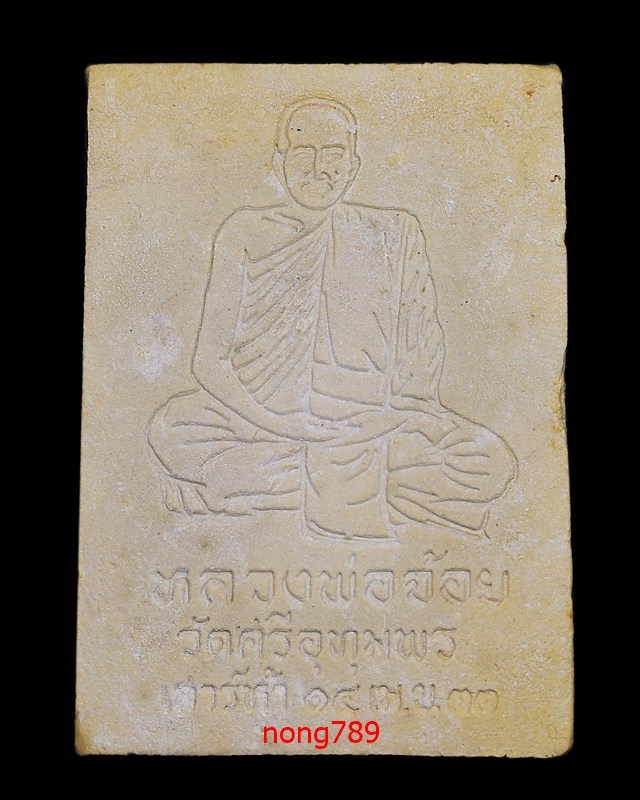 หลวงพ่อจ้อย
วัดศรีอุทุมพร
เสาร์ห้า ๑๔ เม.ย. ๓๓
nong789